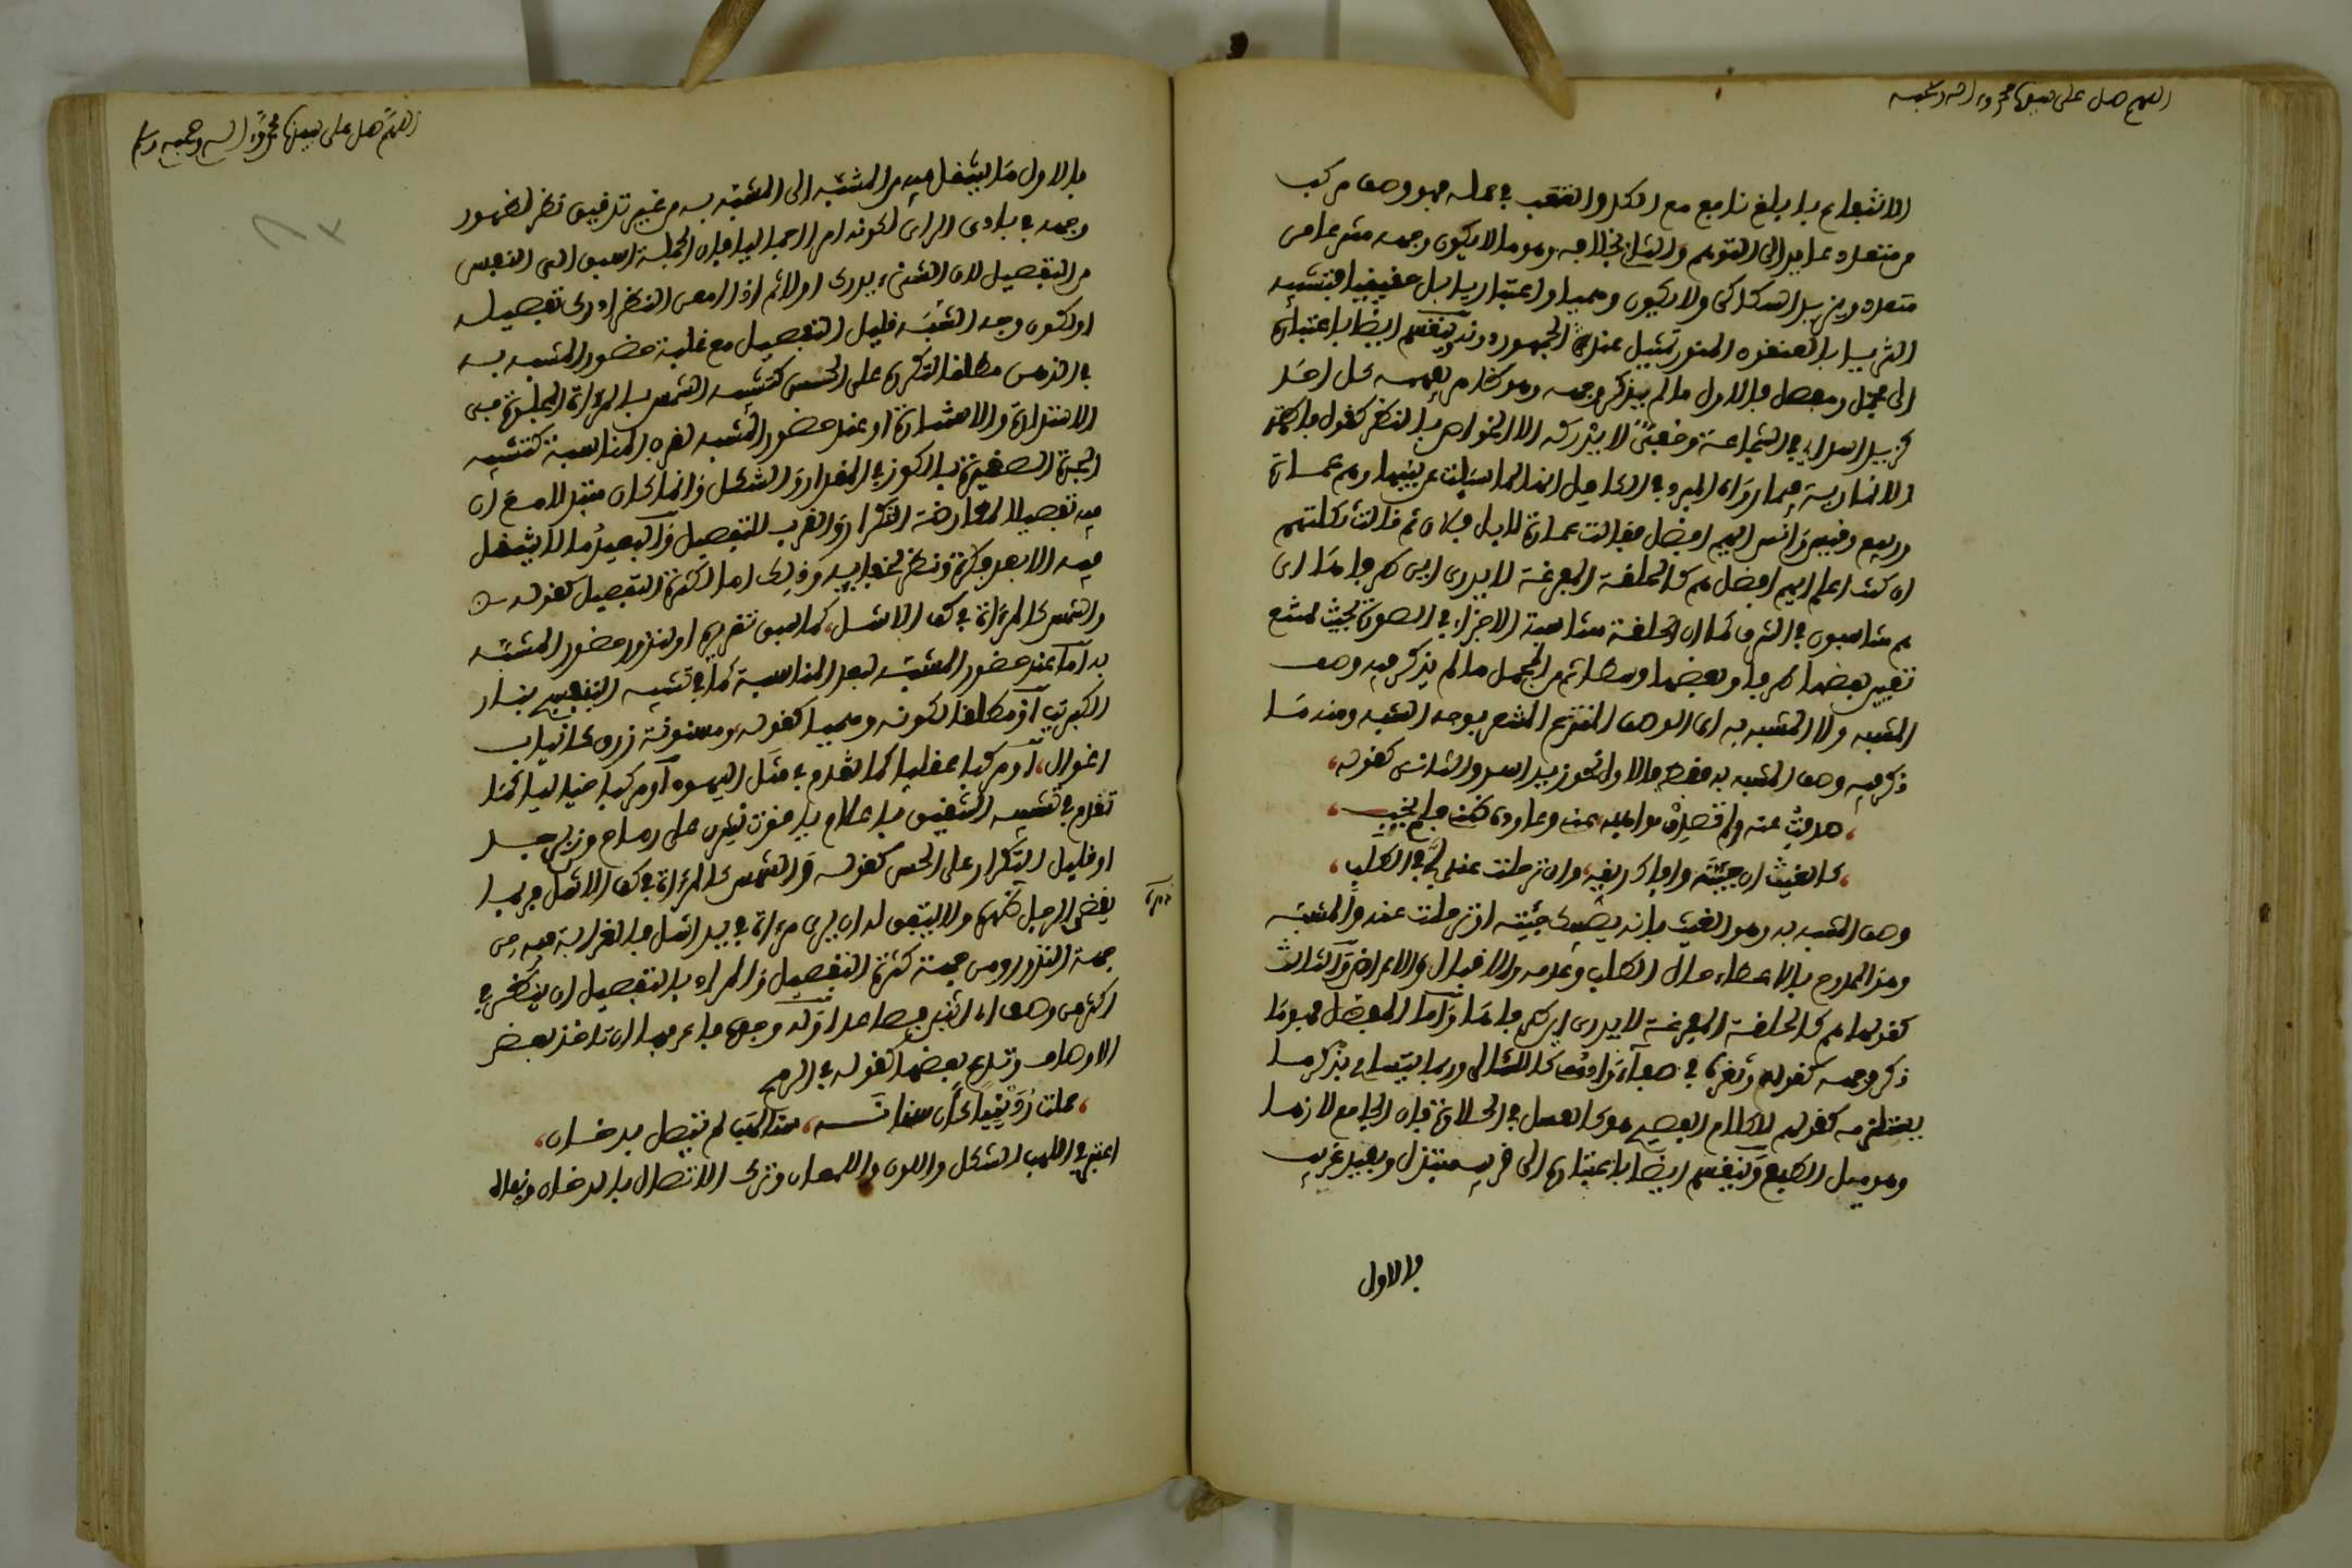 اللهم صل على سيدنا محمد وآله وصحبه
الانتفاع بابلغ نافع مع الكد والتعب في عمله فهو وصف مركب
من متعدد عايد الى التوهم والثاني بخلافه وهو ما لا يكون وجهه منتزعا من
متعدد وينزيد السكاكي ولا يكون وهميا واعتباريا بل حقيقيا فتشبيه
الثريا بالعنقود المنور تمثيل عند الجمهور دونه وينقسم ايضا باعتباره
الى مجمل ومفصل فالاول ما لم يذكر وجهه وهو ظاهر يفهمه كل احد
نحو زيد اسد اي في الشجاعة وخفيّ لا يدركه الا الخواص بالنظر كقول فاطمة
الانمارية فيما رواه المبرد في الكامل انها لما سيلت عن بنيها وهم عمارة
وربيع وقيس وانس ايهم افضل فقالت عمارة لا بل فلان ثم قالت ثكلتهم
ان كنت اعلم ايهم افضل هم كالحلقة المفرغة لا يدرى اين طرفاها اي
هم متناسبون في الشرف كما ان الحلقة متناسبة الاجزاء في الصورة بحيث يمتنع
تعيين بعضها طرفا وبعضها وسطا ثم من المجمل ما لم يذكر فيه وصف
المشبه ولا المشبه به اي الوصف المنتزع المشعر بوجه الشبه ومنه ما
ذكر فيه وصف المشبه به فقط فالاول نحو زيد اسد والثاني كقوله،
، صدفتُ عنه ولم تصدِف مواهبه عني وعاوده ظني فلم يخِبِ،
، كالغيث ان جئتَه وافاك ريقه، وان ترحلت عنه لجّ في الطلب،
وصف المشبه به وهو الغيث بانه يصيبك جئته او ترحلت عنه والمشبه
وهو الممدوح بالاعطاء حال الطلب وعدمه والاقبال والاعراض والثالث
كقولها هم كالحلقة المفرغة لا يدرى اين طرفاها واما المفصل فهو ما
ذكر وجهه كقوله وثغره في صفاء وادمعي كاللئالي وربما يتسامح بذكر ما
يستلزمه كقولهم للكلام الفصيح هو كالعسل في الحلاوة فان الجامع لازمها
وهو ميل الطبع وينقسم ايضا باعتباره الى قريب مبتذل وبعيد غريب
فالاول
اللهم صل على سيدنا محمد وآله وصحبه وسلم
فالاول ما ينتقل فيه من المشبه الى المشبه به من غير تدقيق نظر لظهور
وجهه في بادى الراى لكونه امرا جمليا فان الجملة اسبق الى النفس
من التفصيل لان الشىء يدرك اولا ثم اذا امعن النظر ادرك تفصيله
او لكون وجه الشبه قليل التفصيل مع غلبة حضور المشبه به
في الذهن مطلقا لتكرره على الحس كتشبيه الشمس بالمرءاة المجلوة في
الاستدارة والاستنارة او عند حضور المشبه لقرب المناسبة كتشبيه
الجرة الصغيرة بالكوز في المقدار والشكل وانما كان مبتذلا مع ان
فيه تفصيلا لمعارضة التكرار والقرب للتفصيل والبعيد ما لا ينتقل
فيه الا بعد فكرة ونظر لخفايه وذلك اما لكثرة التفصيل كقوله
والشمس كالمرءاة في كف الاشل، كما سبق تقريره او لندور حضور المشبه
به اما عند حضور المشبه لبعد المناسبة كما في تشبيه البنفسج بنار
الكبريت او مطلقا لكونه وهميا كقوله ومسنونة زرق كانياب
اغوال، او مركبا عقليا كما تقدم في مثل اليهود او مركبا خياليا كما
تقدم في تشبيه الشقيق باعلام ياقوت نشرن على رماح من زبرجد
او قليل التكرار على الحس كقوله والشمس كالمرءاة في كف الاشل فربما
يقضي الرجل عمره ولا يتفق له ان يرى مرءاة في يد اشل فالغرابة فيه من
جهة الندور ومن جهة كثرة التفصيل والمراد بالتفصيل ان ينظر في
اكثر من وصف اي اثنين فصاعدا وله وجوه اعرفها ان تاخذ بعض
الاوصاف وتدع بعضها كقوله في الرمح
، حملت رُدَينيا كأن سنانه، سنا لهب لم يتصل بدخان،
اعتبر في اللهب الشكل واللون واللمعان وترك الاتصال بالدخان ونفاه